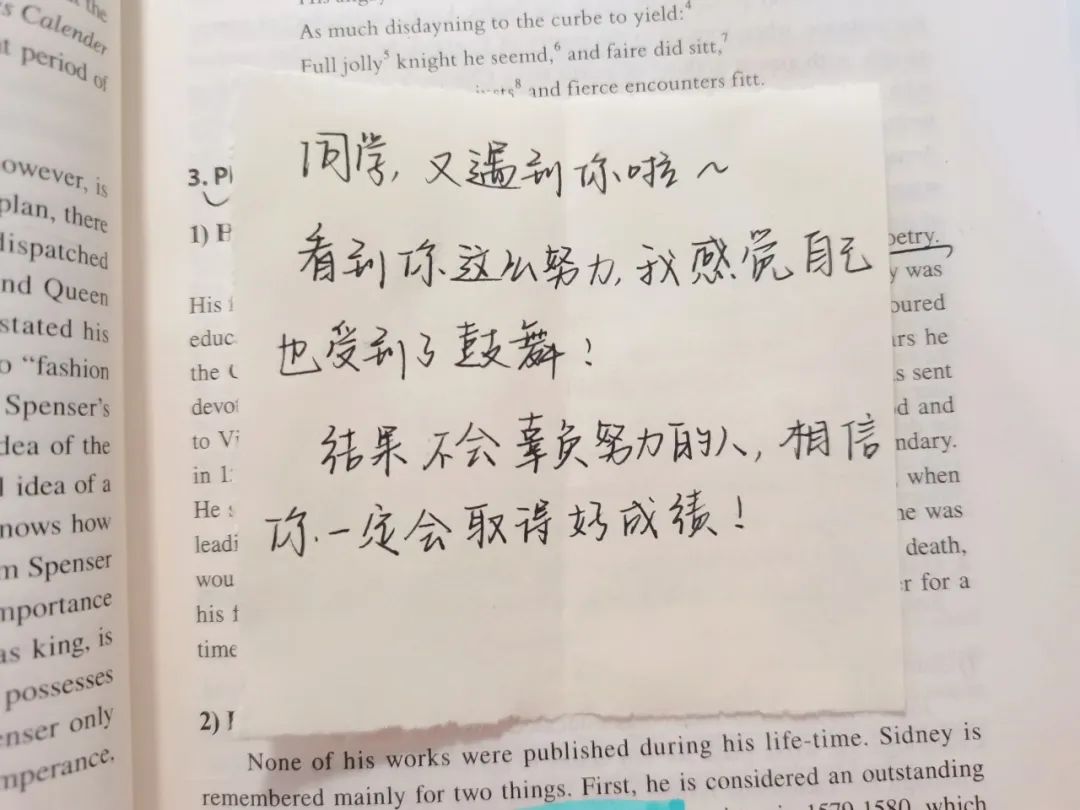 s Calender
t period of
owever, is
plan, there
dispatched
nd Queen
stated his
o “fashion
Spenser's
dea of the
l idea of a
nows how
m Spenser
mportance
as king, is
possesses
enser only
mperance.
As much disdayning to the curbe to yield:4
Full jolly5 knight he seemd,6 and faire did sitt,7
8 and fierce encounters fitt.
3.
1)
同学,又遇到你啦~
看到你这么努力,我感觉自己
也受到了鼓舞!
结果不会辜负努力的人,相信
你一定会取得好成绩!
oetry.
His
y was
educ
oured
the
rs he
devo
s sent
to Vi
d and
in 1
ndary.
He
, when
leadi
he was
wou
death,
his f
r for a
time
2)
None of his works were published during his life-time. Sidney is
remembered mainly for two things. First, he is considered an outstanding
1579-1580, which